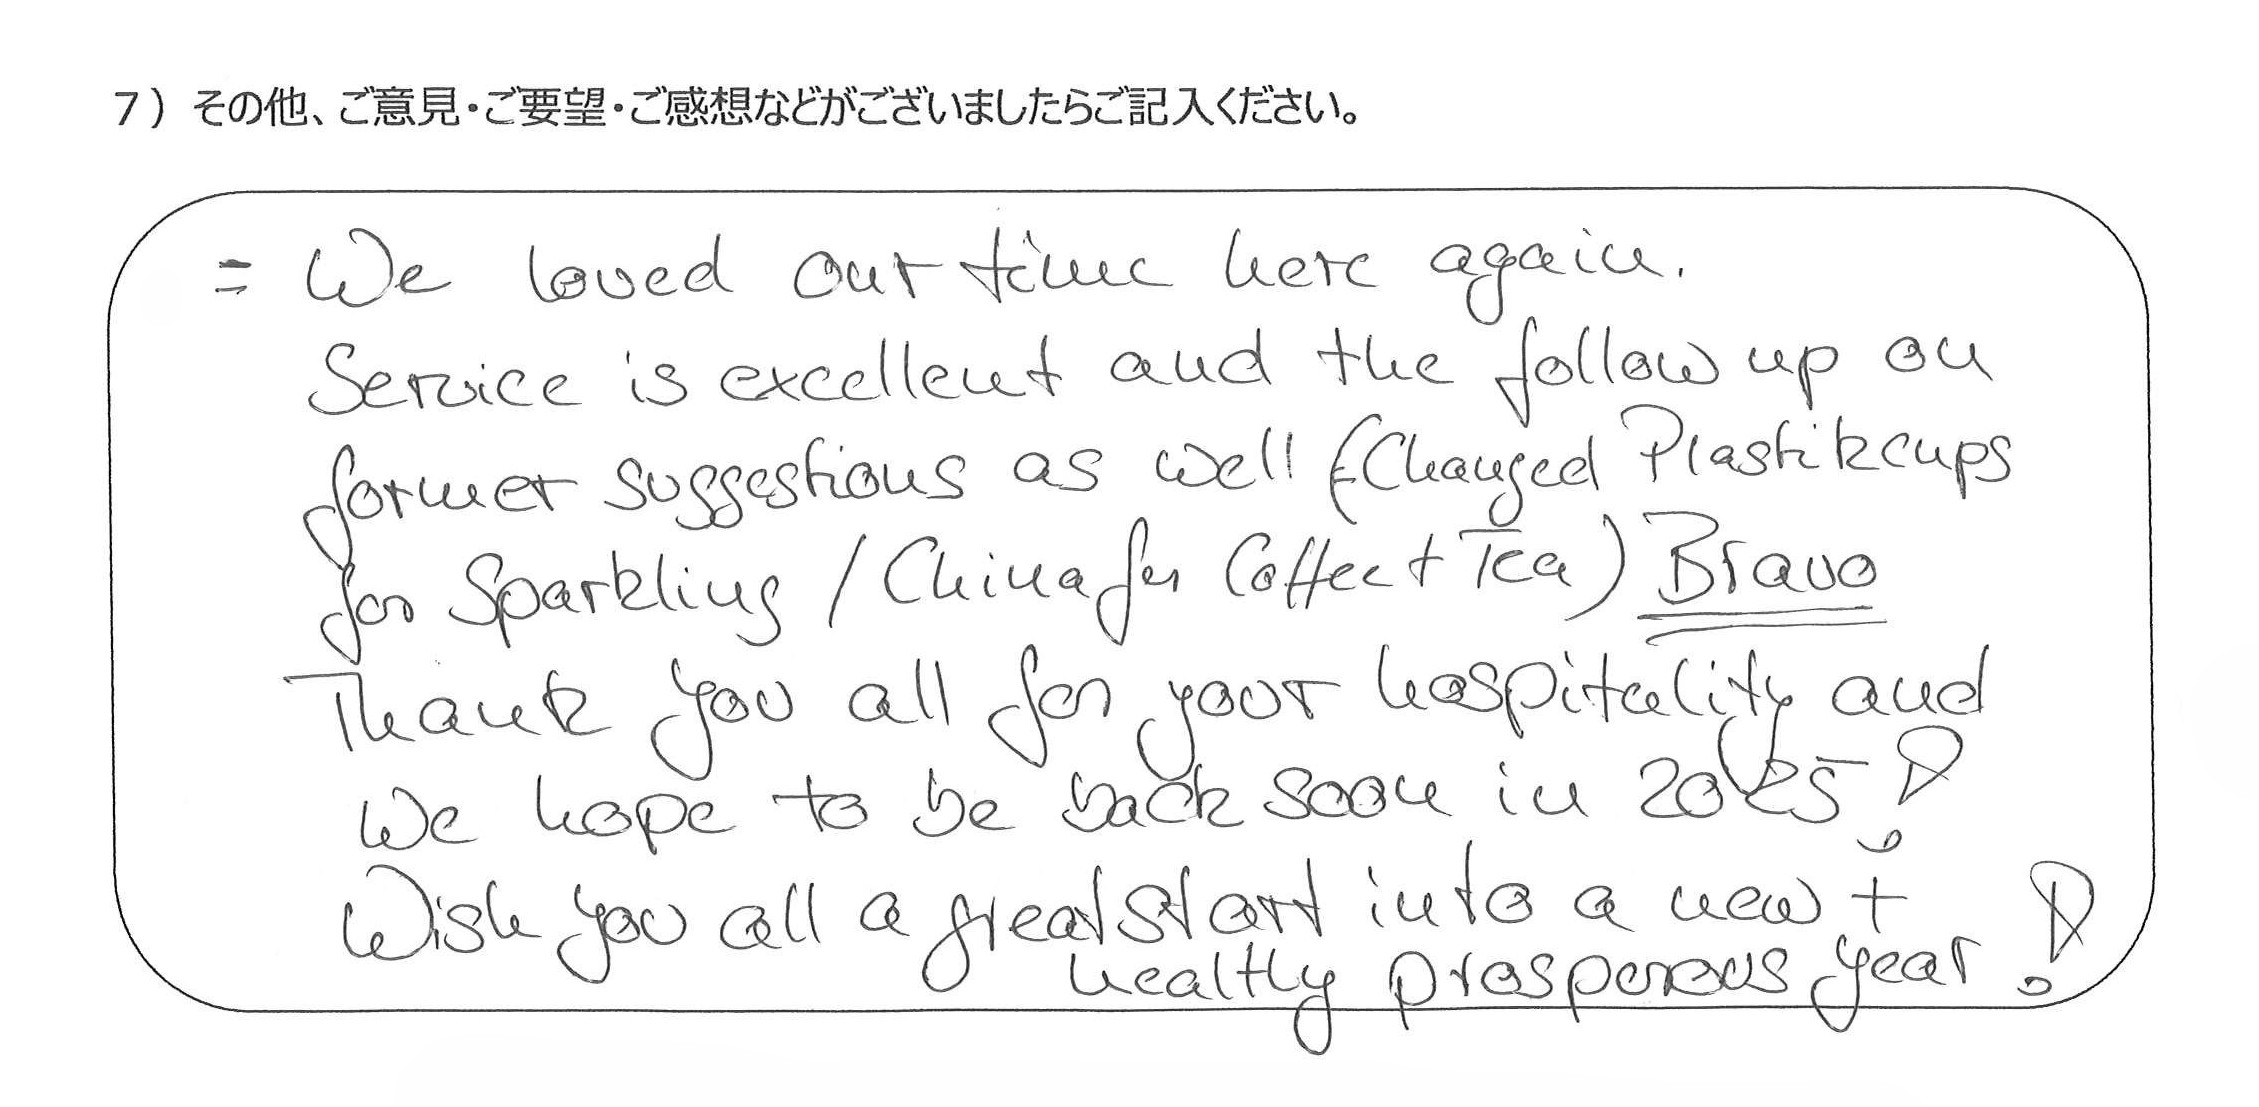 7）その他、ご意見・ご要望・ご感想などがございましたらご記入ください。
= We loved our time here again.
Service is excellent and the follow up on
former suggestions as well (Changed Plastikcups
for Sparkling / China for Coffee + Tea) Bravo
Thank you all for your hospitality and
we hope to be back soon in 2025!
Wish you all a great start into a new +
healthy prosperous year!